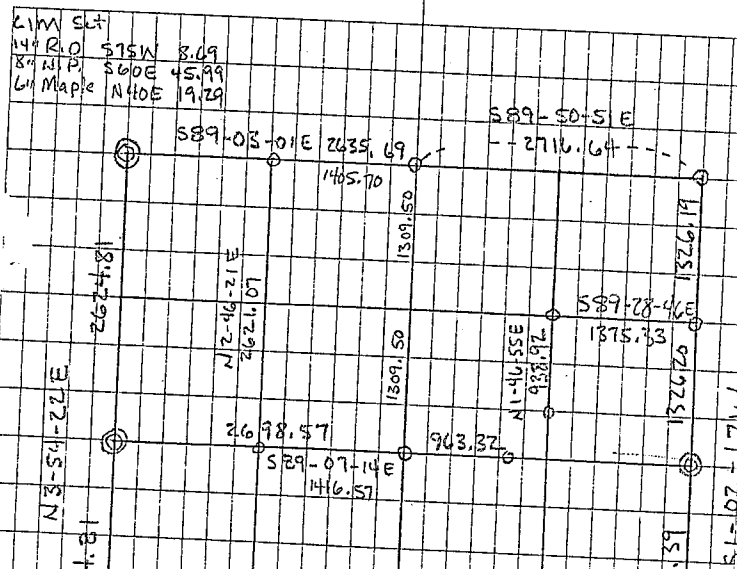 CIM Set
14" R.O S75W 8.69
8" W.P. S60E 45.99
6" Maple N40E 19.29
S89-50-51 E
2716.64
S89-03-01E 2635.69
1405.70
1309.50
1326.19
2624.81
N2-46-21E
2621.07
S89-28-46E
1375.33
N1-46-55E
928.92
1309.50
1326.20
N3-54-22E
2698.57
963.32
S89-07-14E
1416.57